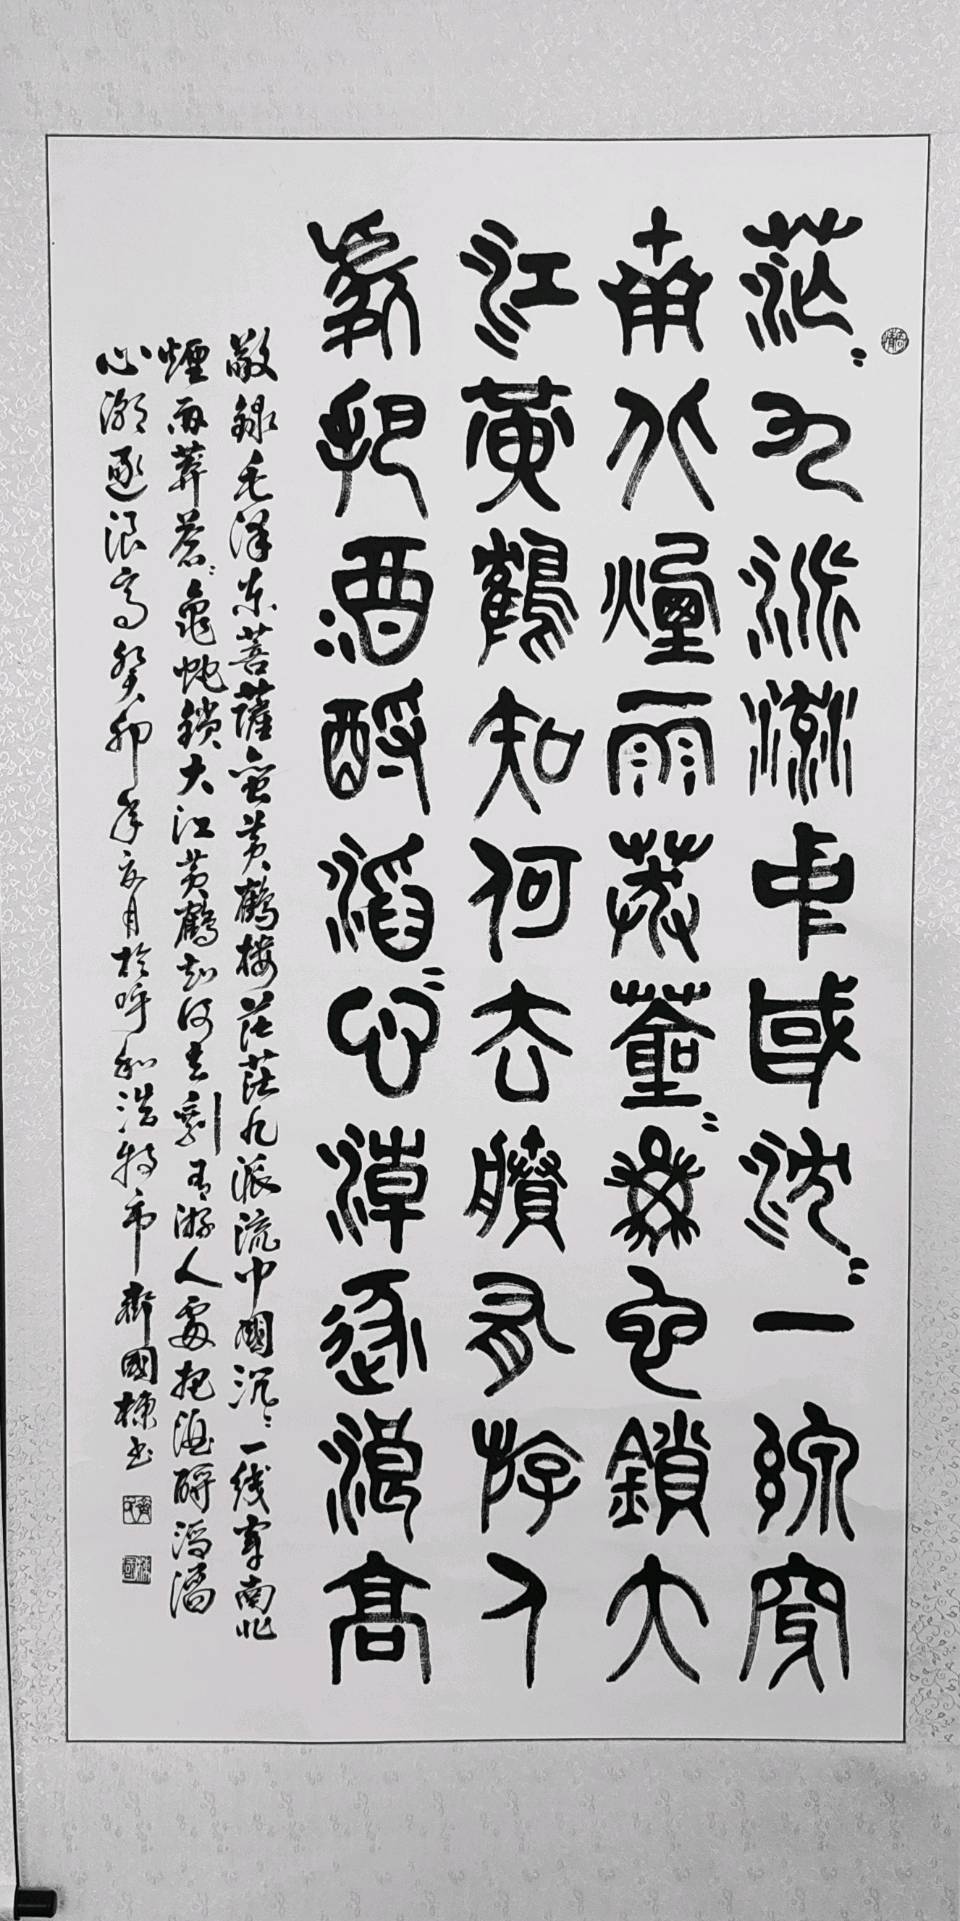 茫〻九派流中國沈〻一線穿
南北煙雨莽蒼〻龜蛇鎖大
江黃鶴知何去賸有游人
處把酒酹滔〻心潮逐浪高
敬錄毛澤東菩薩蠻黃鶴樓茫茫九派流中國沉〻一线穿南北
煙雨莽蒼〻龜蛇鎖大江黃鶴知何去剩有游人處把酒酹滔滔
心潮逐浪高癸卯年亥月於呼和浩特市齊國棟书